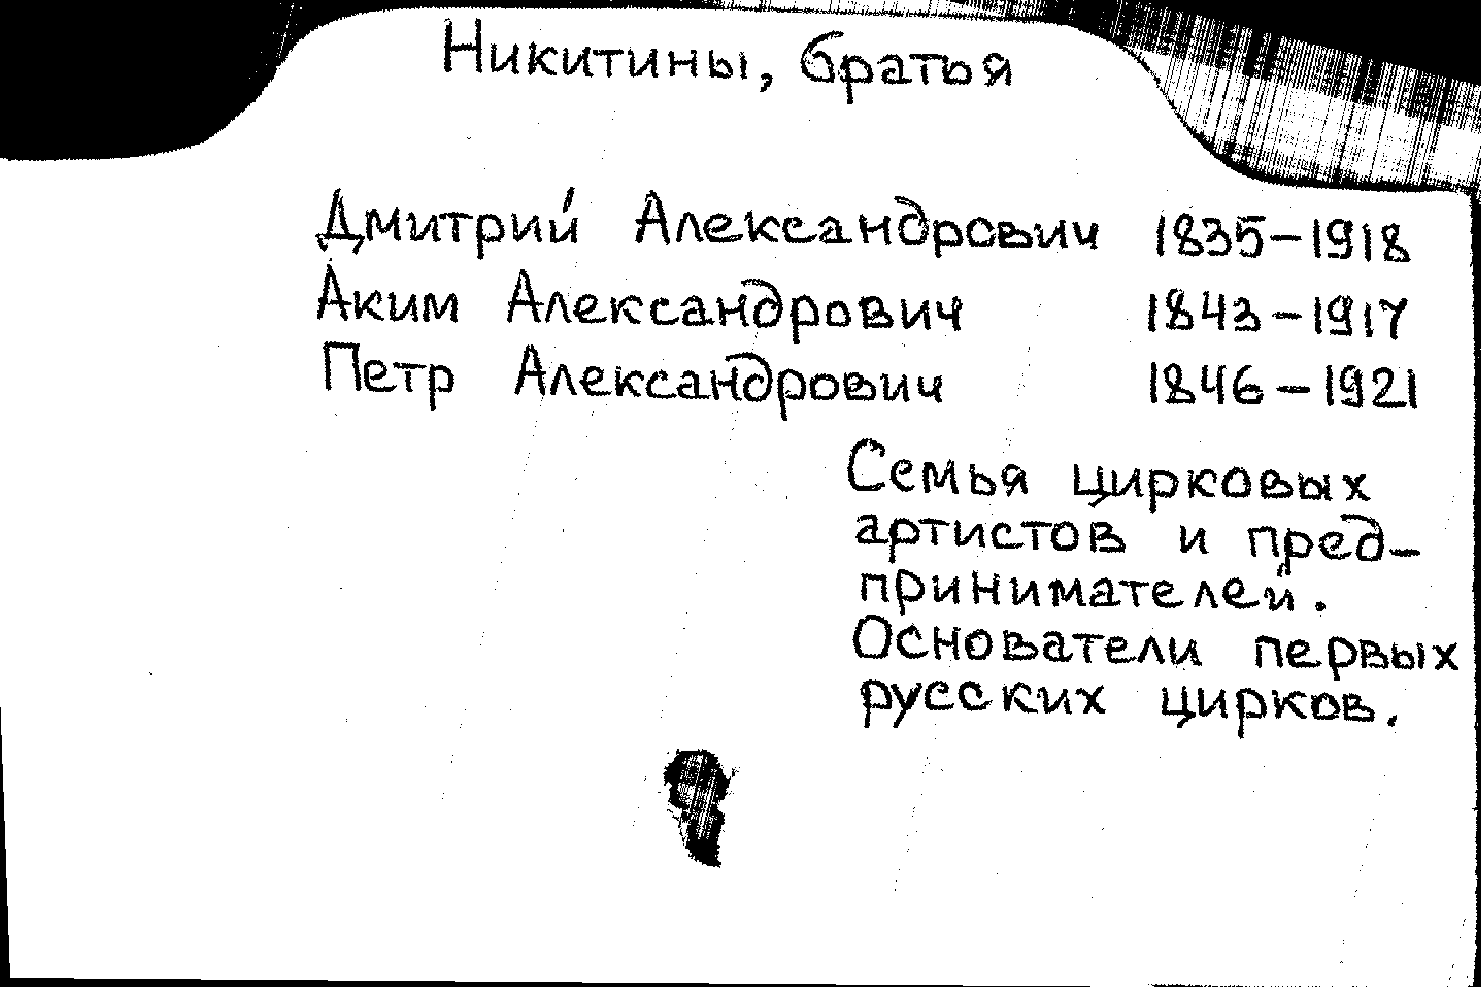 Никитины, братья
Дмитрий Александрович 1835-1918
Аким Александрович 1843-1917
Петр Александрович 1846-1921
Семья цирковых
артистов и пред-
принимателей.
Основатели первых
русских цирков.